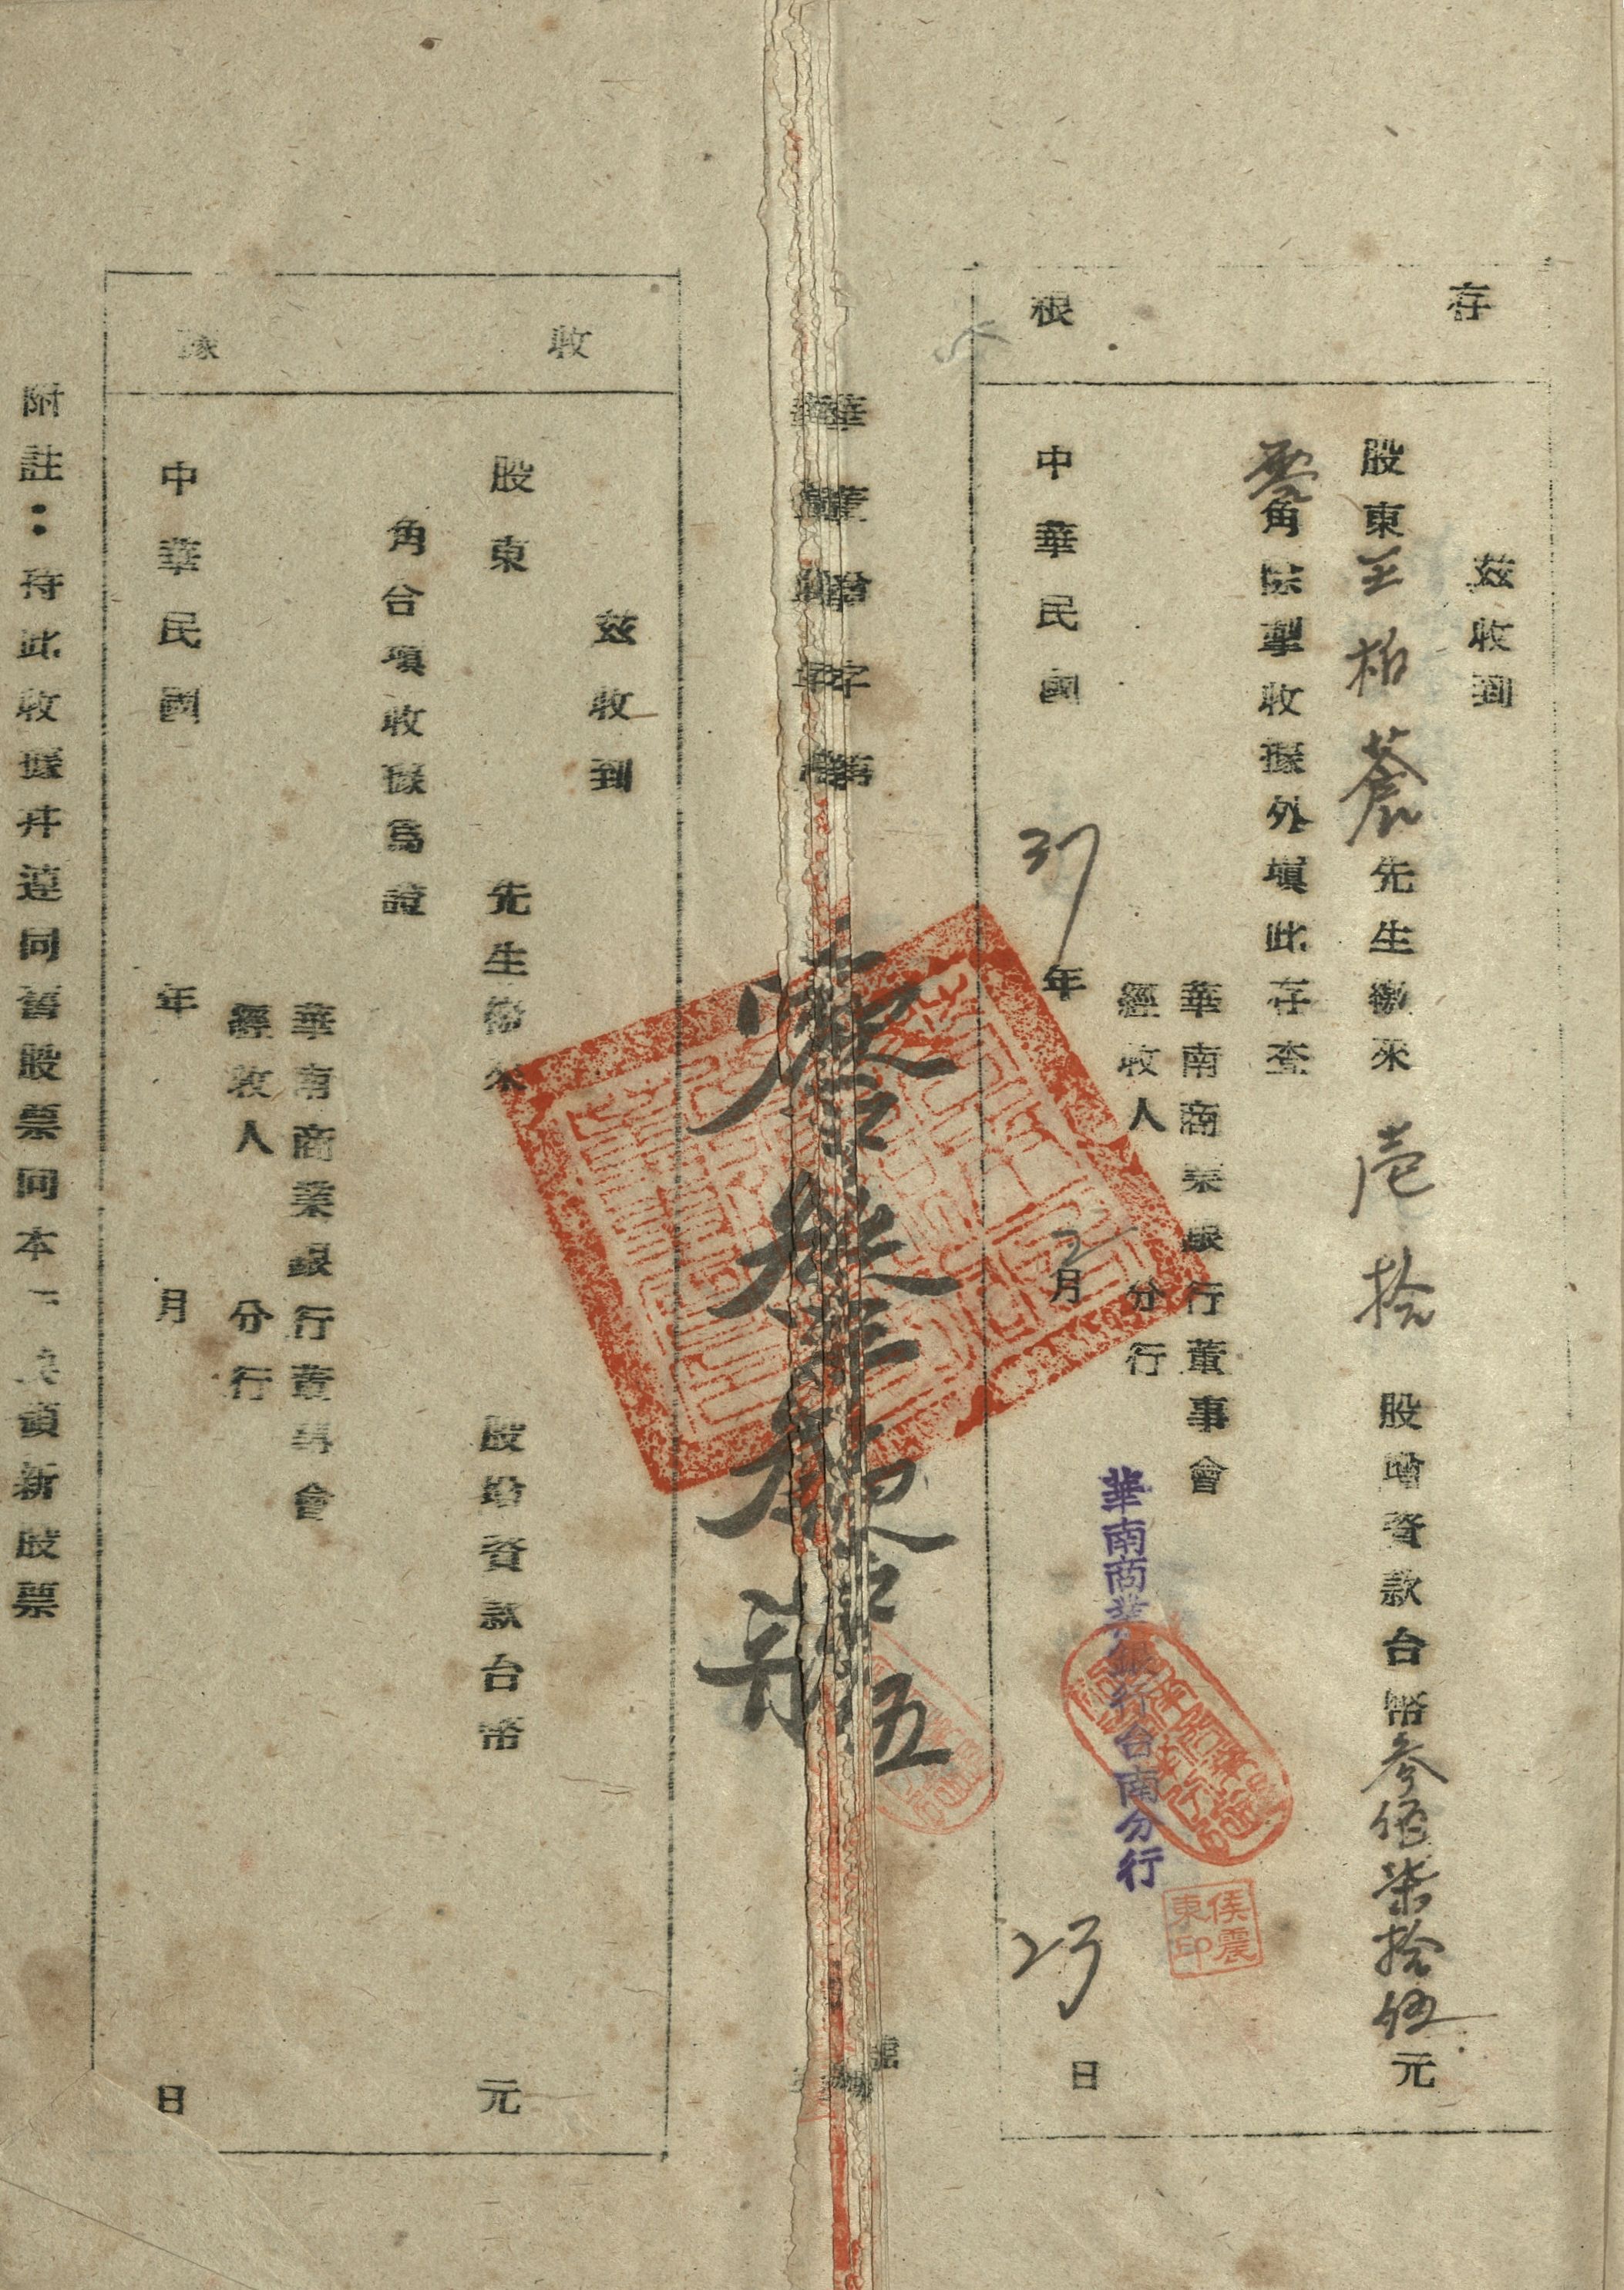 存根
茲收到
股東王柏蒼先生繳來壹拾股增資款台幣參佰柒拾伍元
零角除掣收據外填此存查
華南商業銀行董事會
經收人 分行
華南商業銀行台南分行
侯震東印
中華民國37年2月23日
華董增字第
號
收據
茲收到
股東 先生繳來 股增資款台幣 元
角合填收據為證
華南商業銀行董事會
經收人 分行
中華民國 年 月 日
附註：持此收據并連同舊股票向本 領新股票